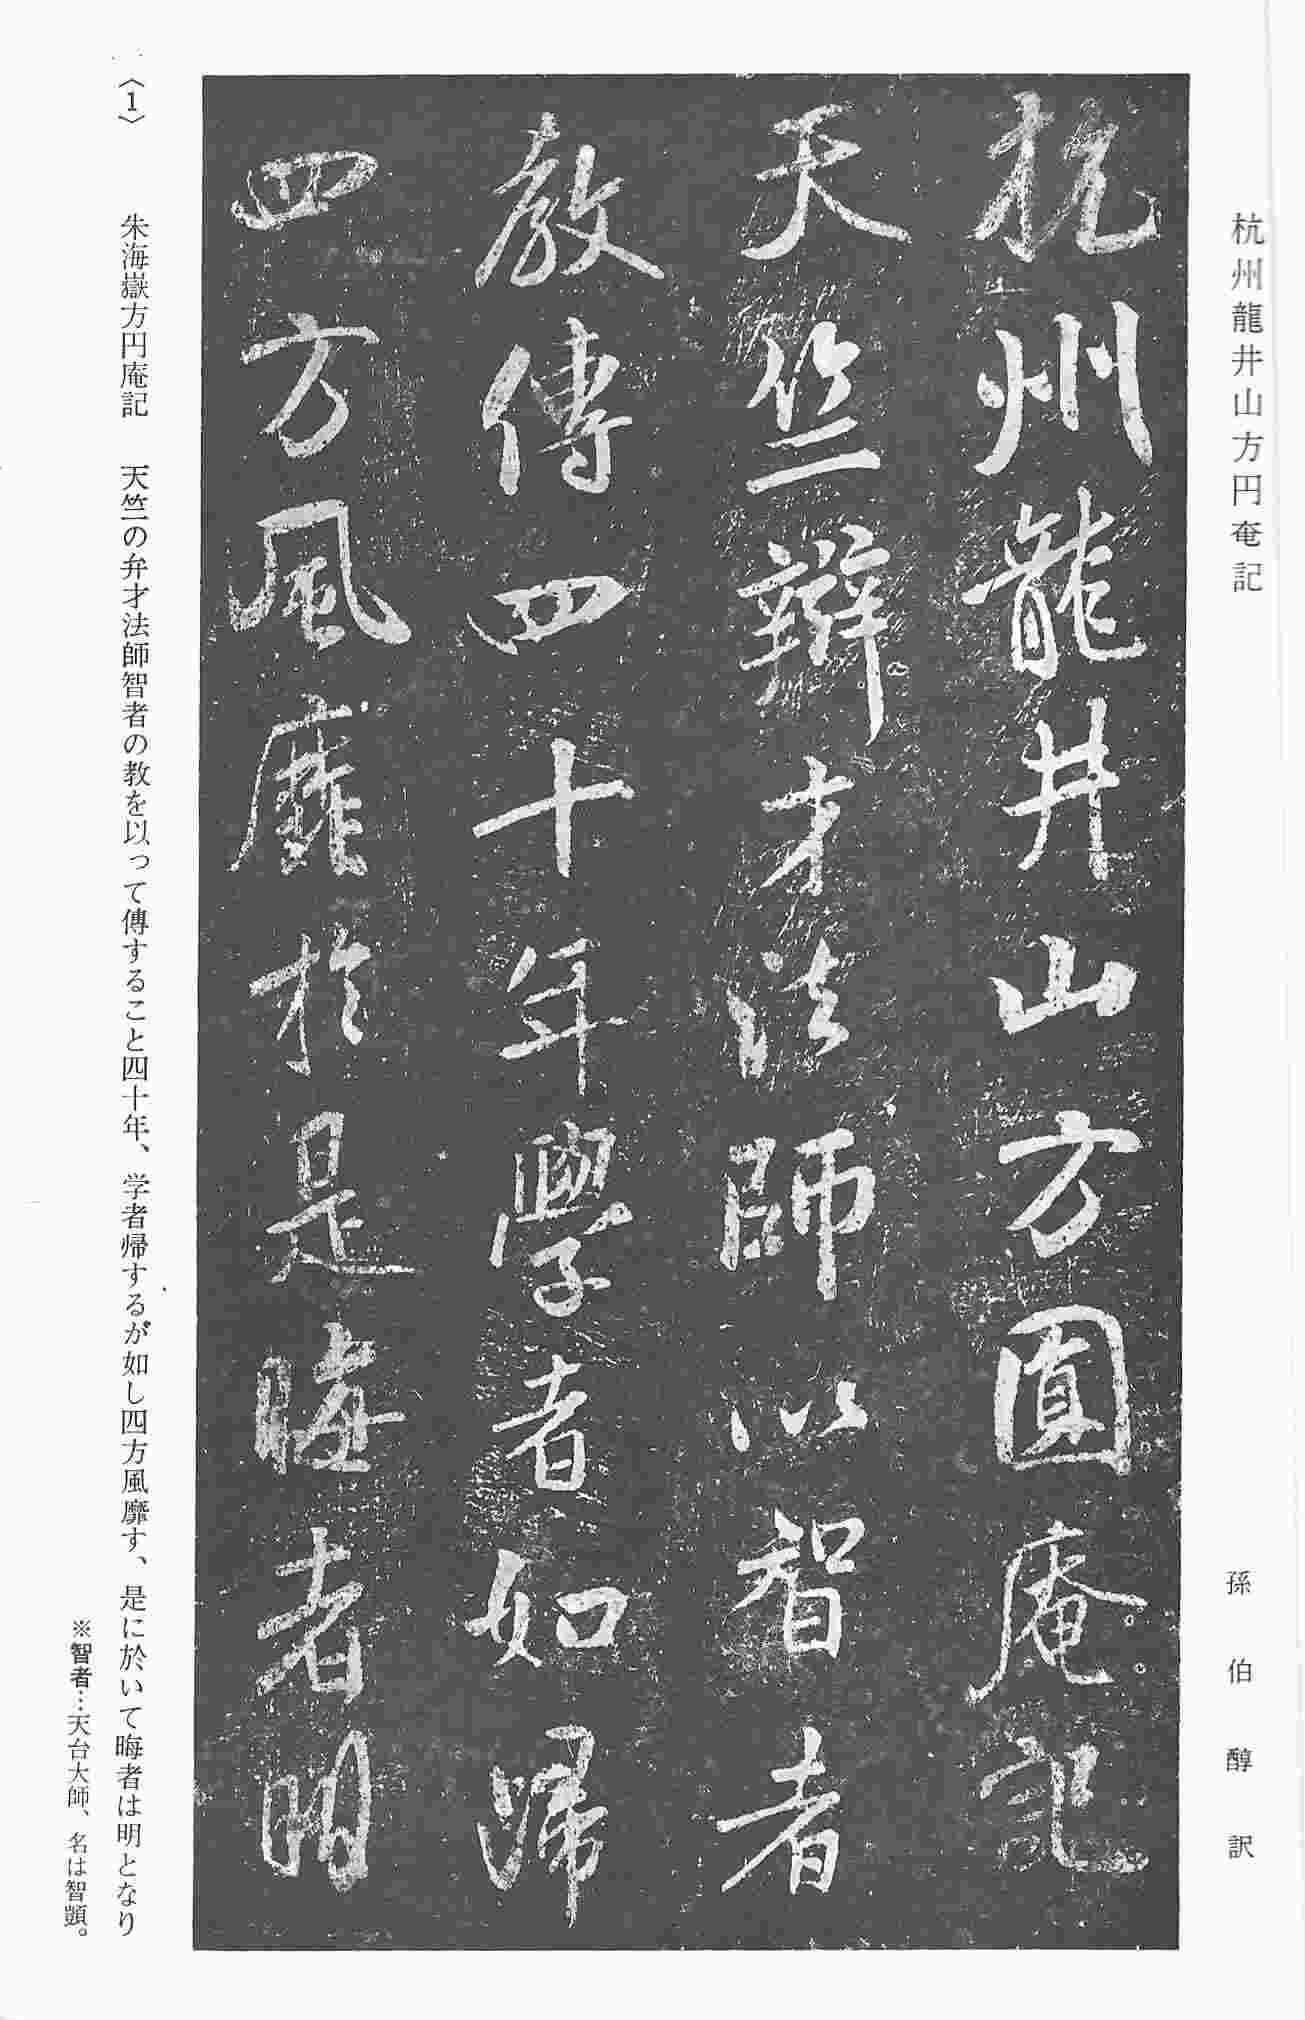 杭州龍井山方円奄記
孫伯醇訳
杭州龍井山方圓庵記
天竺辯才法師以智者
教傳四十年學者如歸
四方風靡於是晦者明
〈1〉 朱海嶽方円庵記 天竺の弁才法師智者の教を以って傳すること四十年、学者帰するが如し四方風靡す、是に於いて晦者は明となり
※智者…天台大師、名は智顗。